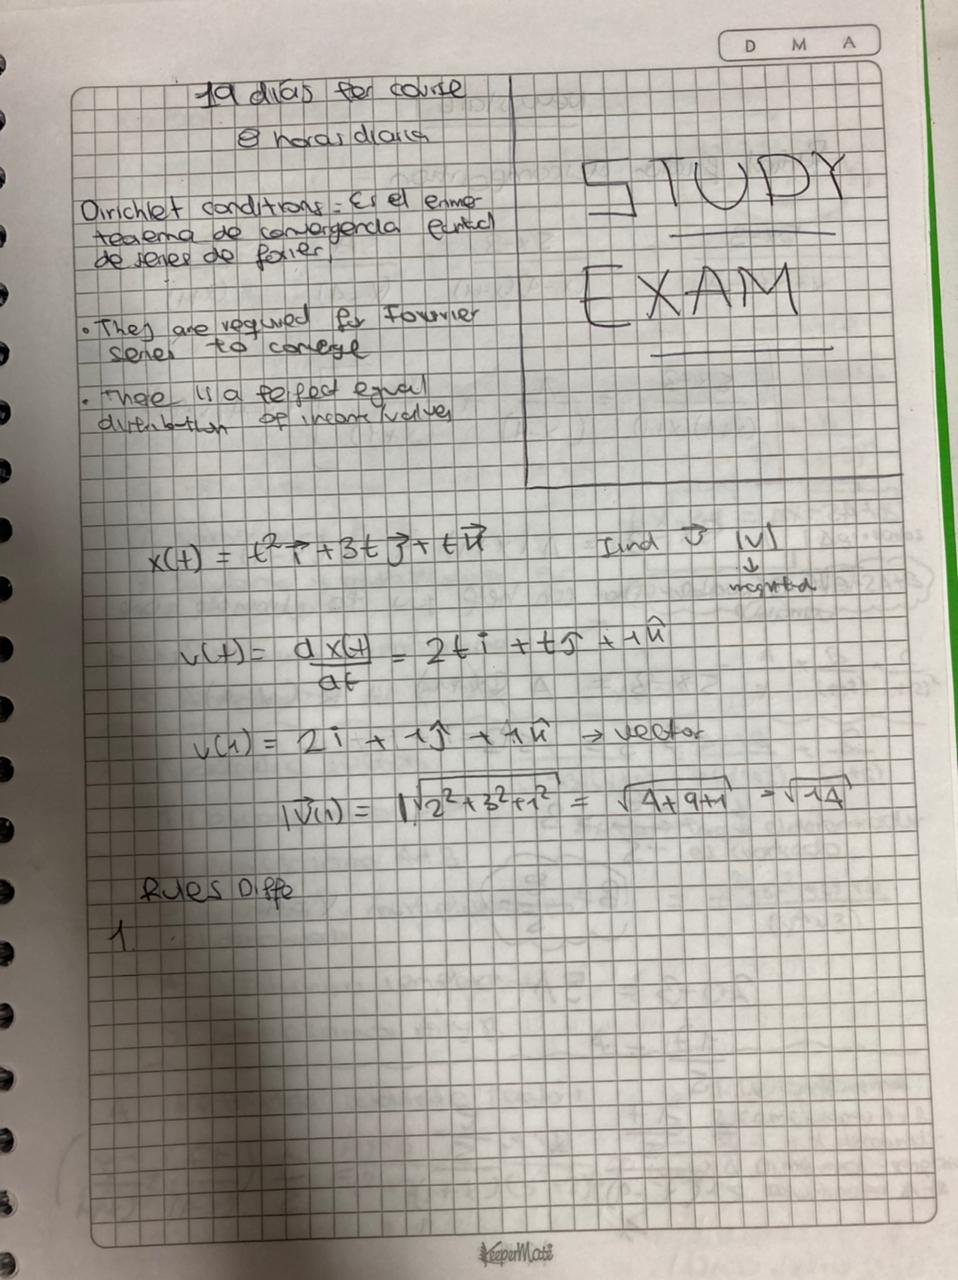 D M A
19 dias per course
8 horas diarias
STUDY
EXAM
Dirichlet conditions = Es el
teorema de convergencia
de series de
• They are required for Fourier
series to converge
• There is a perfect equal
distribution of values
x(t) = t² i⃗ + 3t j⃗ + t k⃗ find v⃗ |v|
↓
v(t) = dx(t)/dt = 2t i + t j + 1 k̂
v(1) = 2i + 1j + 1k̂ → vector
|v⃗(1) = √2²+3²+1² = √4+9+1 = √14
Rules Diffe
1.
KeeperMate